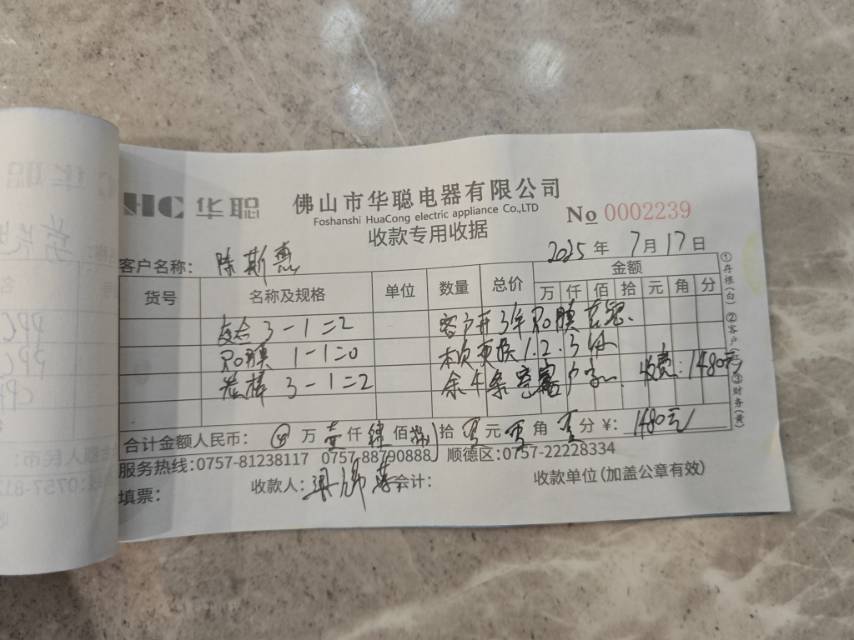 HC 华聪
佛山市华聪电器有限公司
Foshanshi HuaCong electric appliance Co.,LTD
No 0002239
收款专用收据
2025年7月17日
客户名称：陈斯惠
货号 名称及规格 单位 数量 总价 金额
万 仟 佰 拾 元 角 分
3-1=2 客户 3年Ro膜套
Ro膜 1-1=0 本次更换1.2.3
棒 3-1=2 余 户 收费：1480元
合计金额人民币： 万 壹仟肆佰捌拾 元 角 分 ¥：1480元
服务热线：0757-81238117 0757-88790888 顺德区：0757-22228334
填票： 收款人： 会计： 收款单位（加盖公章有效）
①存根（白） ②客户 ③财务（黄）